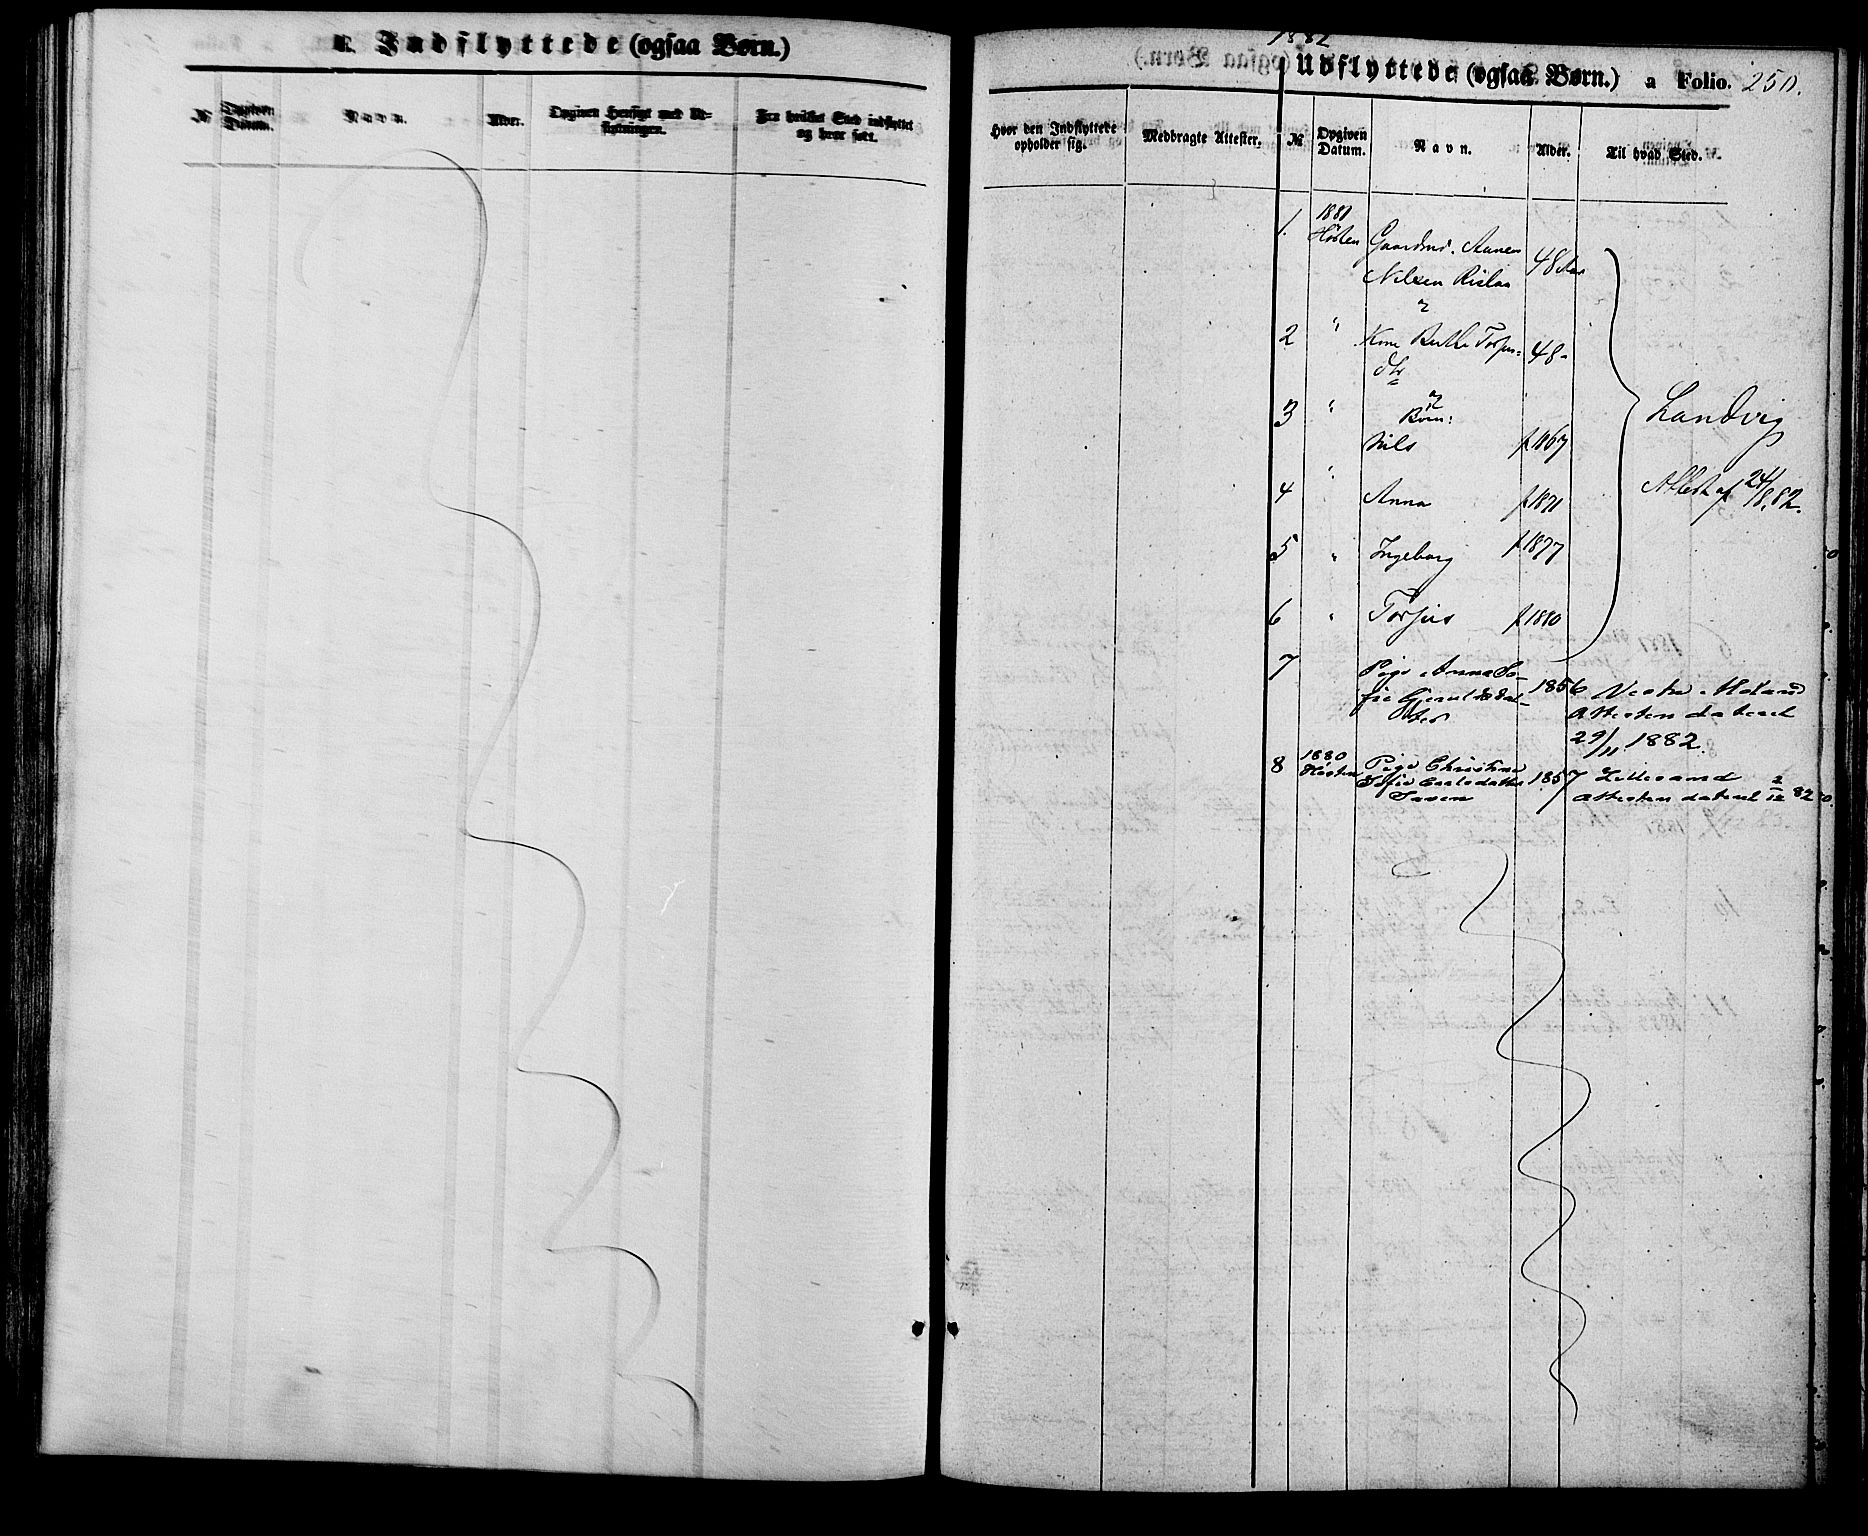 E. Indflyttede (ogsaa Børn.)
№
Opgiven Datum.
Navn.
Alder.
Opgiven Hensigt med Ud-
flytningen.
Fra hvilket Sted indflyttet
og hvor født.
1882
Udflyttede (ogsaa Børn.) a Folio. 250.
Hvor den Indflyttede
opholder sig.
Medbragte Attester.
№
Opgiven
Datum.
Navn.
Alder.
Til hvad Sted.
1. 1881 Høsten Gaardmd. Aanen 48 Aar
Nilsen Rislaa
2 " Kone Berthe Torjus= 48-
dtr
3 " Børn:
Nils f 1867
Landvig
4 " Anna f 1871 Attest af 24/8. 82.
5 " Ingeborg f 1877
6 " Torjus f 1880
7 Pige Anna So- 1856 Vestre Moland
fie Gjeruldsdat- Attesten dateret
ter 29/11 1882.
8 1880 Høsten Pige Christine 1857 Lillesand
Sofie Carlsdatter Attesten dateret 2/12 82